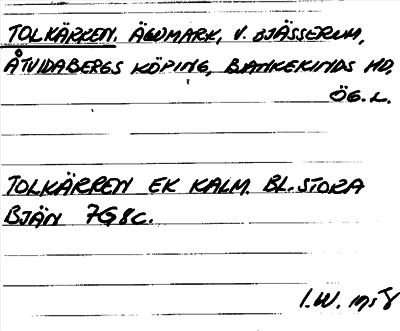 TOLKÄRREN. ÄGOMARK, V. BJÄSSERUM,
ÅTVIDABERGS KÖPING, BANKEKINDS HD,
ÖG. L.
TOLKÄRREN EK KALM. BL. STORA
BJÄN 7G8c.
I.W.